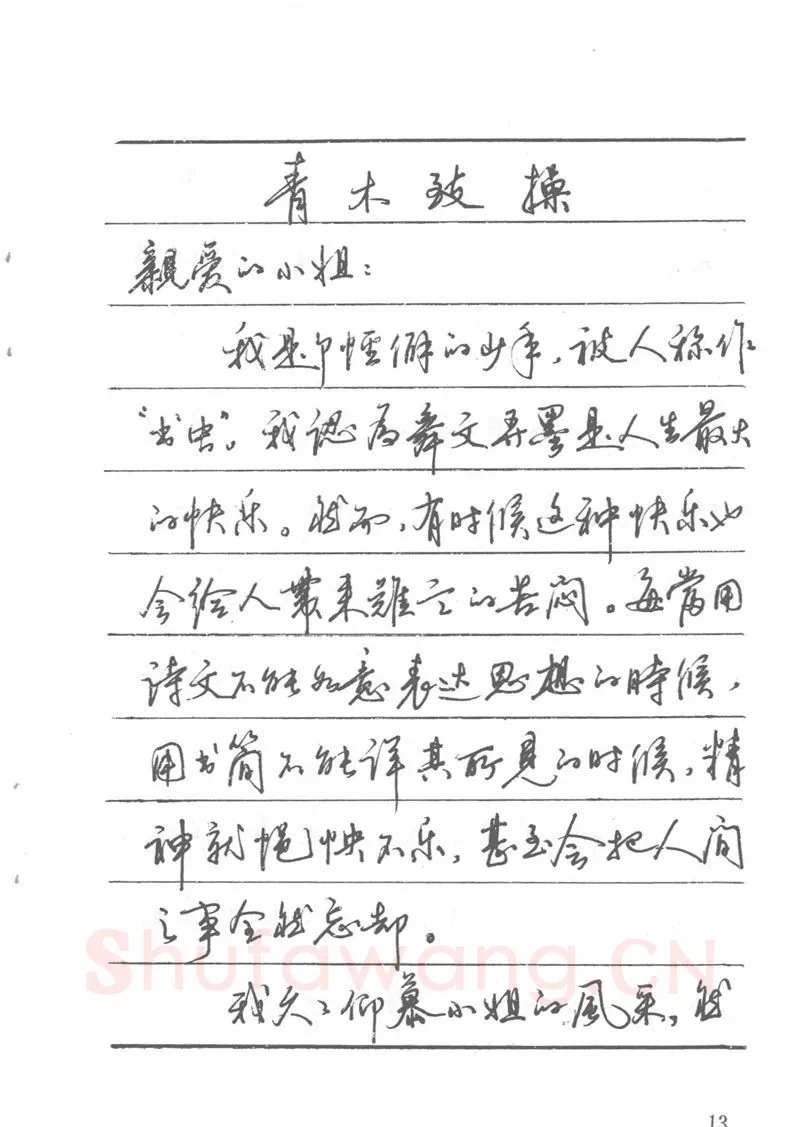 青木致操
親爱的小姐：
我是个怪僻的少年，被人称作
“书虫”。我認为舞文弄墨是人生最大
的快乐。然而，有时候这种快乐也
会给人帶来難言的苦闷。每當用
诗文不能如意表达思想的時候，
用书简不能详其所見的时候，精
神就悒怏不乐，甚至会把人间
之事全然忘却。
我天天仰慕小姐的風采，然
Shufawang.CN
13